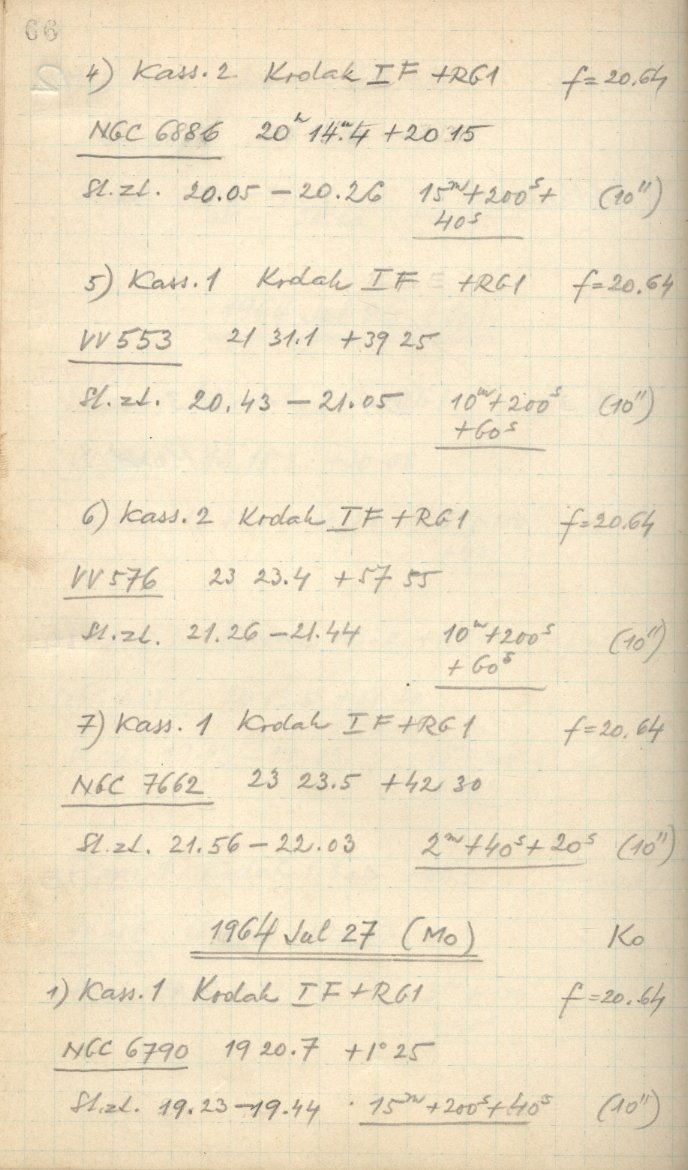 66
4) Kass. 2 Kodak I F + RG1 f = 20.64
NGC 6886 20ʰ 14ᵐ.4 +20 15
St.zt. 20.05 – 20.26 15ᵐ+200ˢ+ (10")
40ˢ
5) Kass. 1 Kodak I F + RG1 f = 20.64
VV 553 21 31.1 +39 25
St.zt. 20.43 – 21.05 10ᵐ+200ˢ (10")
+60ˢ
6) Kass. 2 Kodak I F + RG1 f = 20.64
VV 576 23 23.4 +57 55
St.zt. 21.26 – 21.44 10ᵐ+200ˢ (10")
+60ˢ
7) Kass. 1 Kodak I F + RG1 f = 20.64
NGC 7662 23 23.5 +42 30
St.zt. 21.56 – 22.03 2ᵐ+40ˢ+20ˢ (10")
1964 Jul 27 (Mo) Ko
1) Kass. 1 Kodak I F + RG1 f = 20.64
NGC 6790 19 20.7 +1° 25
St.zt. 19.23 – 19.44 15ᵐ+200ˢ+40ˢ (10")